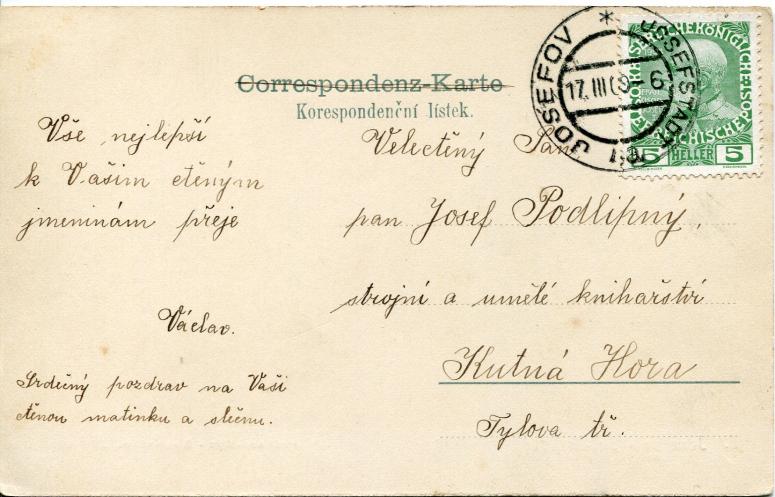 Correspondenz-Karte
Korespondenční lístek.
JOSEFOV
JOSEFSTADT
17. III
6
5 HELLER 5
Vše nejlepší
k Vašim ctěným
jmeninám přeje
Václav.
Srdečný pozdrav na Vaši
ctěnou matinku a slečnu.
Velectěný Pan
pan Josef Podlipný,
strojní a umělé knihařství
Kutná Hora
Tylova tř.